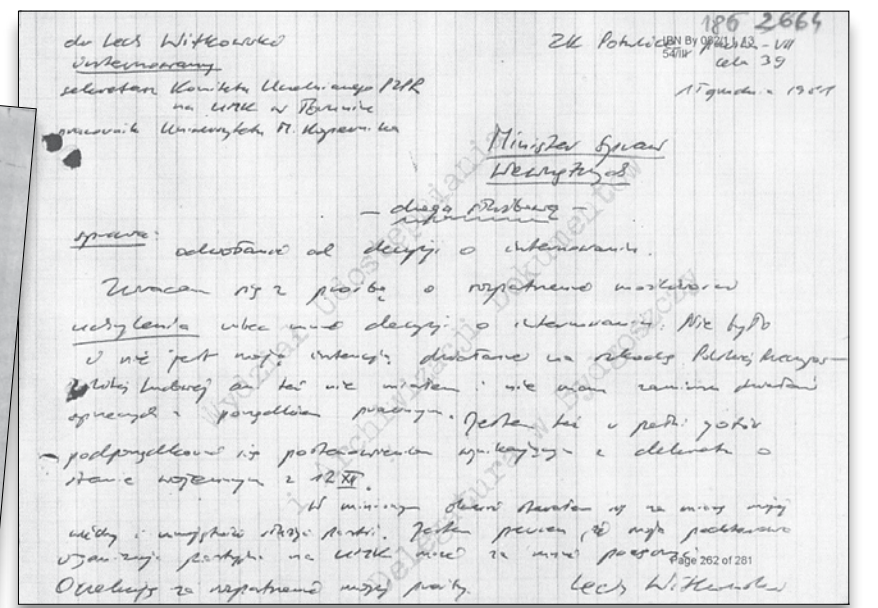 186 2664
dr Lech Witkowski
ZK Potulice VII
IBN By 082/11 A3
54/IV
internowany
cela 39
sekretarz Komitetu Uczelnianego PZPR
na UMK w Toruniu
17 grudnia 1981
pracownik Uniwersytetu M. Kopernika
Minister Spraw
Wewnętrznych
– drogą służbową –
sprawa:
odwołanie od decyzji o internowaniu.
Zwracam się z prośbą o rozpatrzenie możliwości
uchylenia wobec mnie decyzji o internowaniu. Nie było
i nie jest moją intencją działanie na szkodę Polskiej Rzeczypos-
politej Ludowej ani też nie miałem i nie mam zamiaru działań
sprzecznych z porządkiem prawnym. Jestem też w pełni gotów
podporządkować się postanowieniom wynikającym z dekretu o
stanie wojennym z 12 XII.
W minionym okresie starałem się na miarę mojej
wiedzy i umiejętności służyć partii. Jestem pewien, że moja podstawowa
organizacja partyjna na UMK może za mnie poręczyć.
Page 262 of 281
Oczekuję na rozpatrzenie mojej prośby.
Lech Witkowski
Wydział Udostępniania
i Archiwizacji Dokumentów
Delegatura w Bydgoszczy